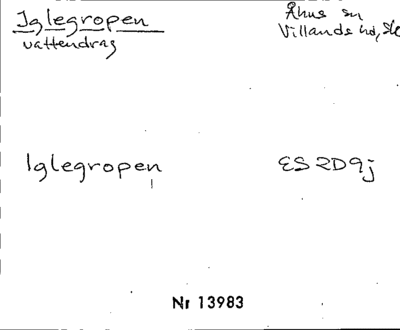 Iglegropen
Åhus sn
vattendrag
Villands hd, Sk
Iglegropen
ES 2D9j
Nr 13983